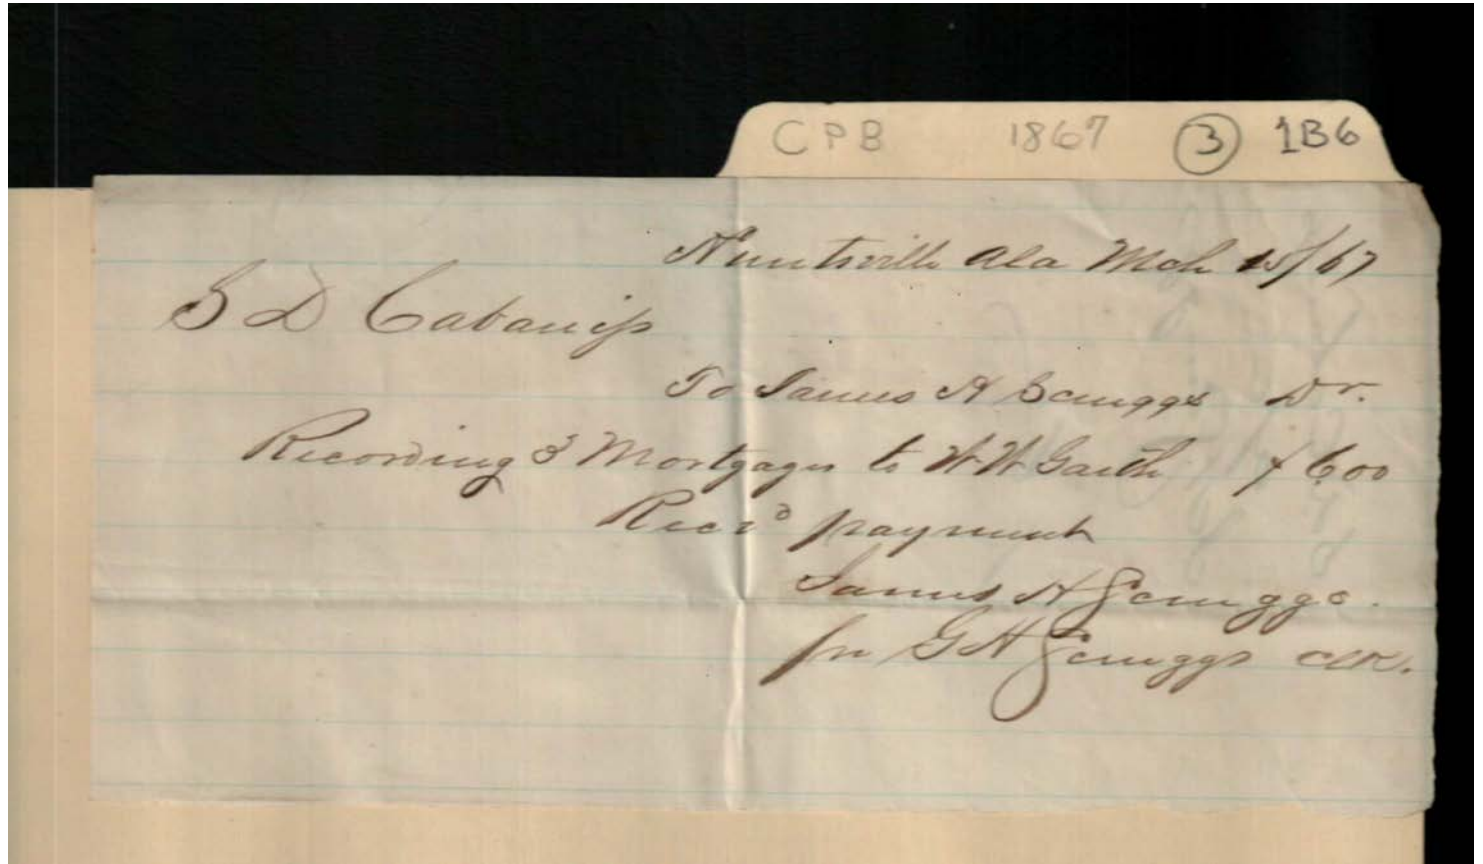 CPB 1867 3 1B6
Huntsville Ala Mch 15/67
S D Cabaniss
To James H Scruggs Dr.
Recording 3 Mortgages to W W Garth $6.00
Rec'd payment
James H Scruggs.
per G H Scruggs clk.